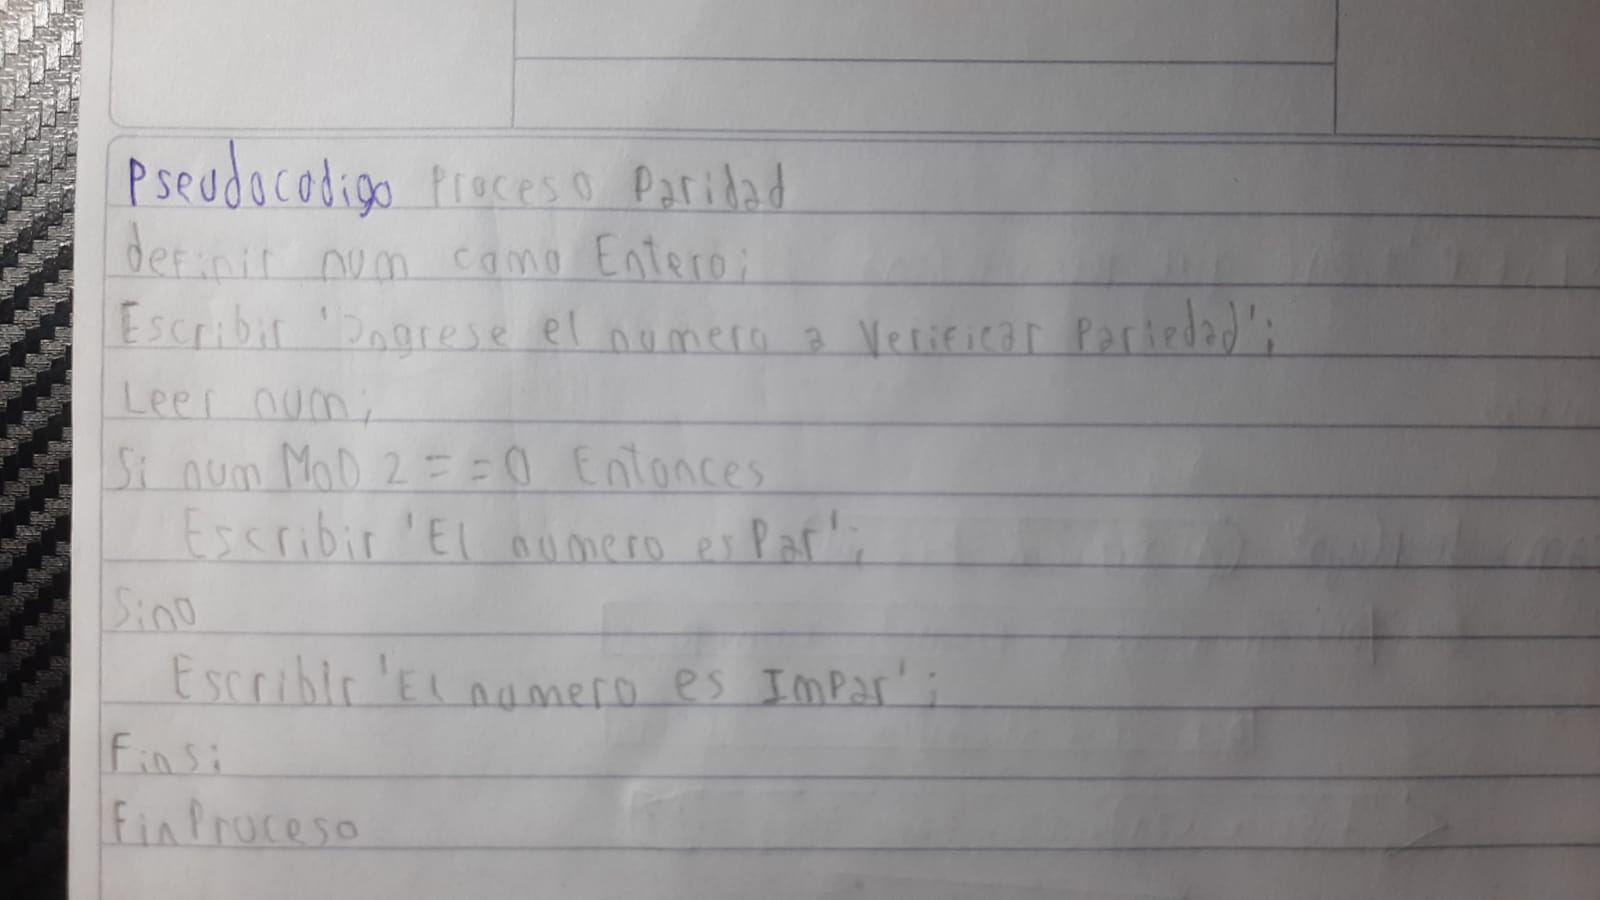 Pseudocodigo Proceso Paridad
definir num como Entero;
Escribir 'Ingrese el numero a Verificar Pariedad';
Leer num;
Si num MOD 2 = = 0 Entonces
Escribir 'El numero es Par';
Sino
Escribir 'El numero es Impar';
Finsi
FinProceso